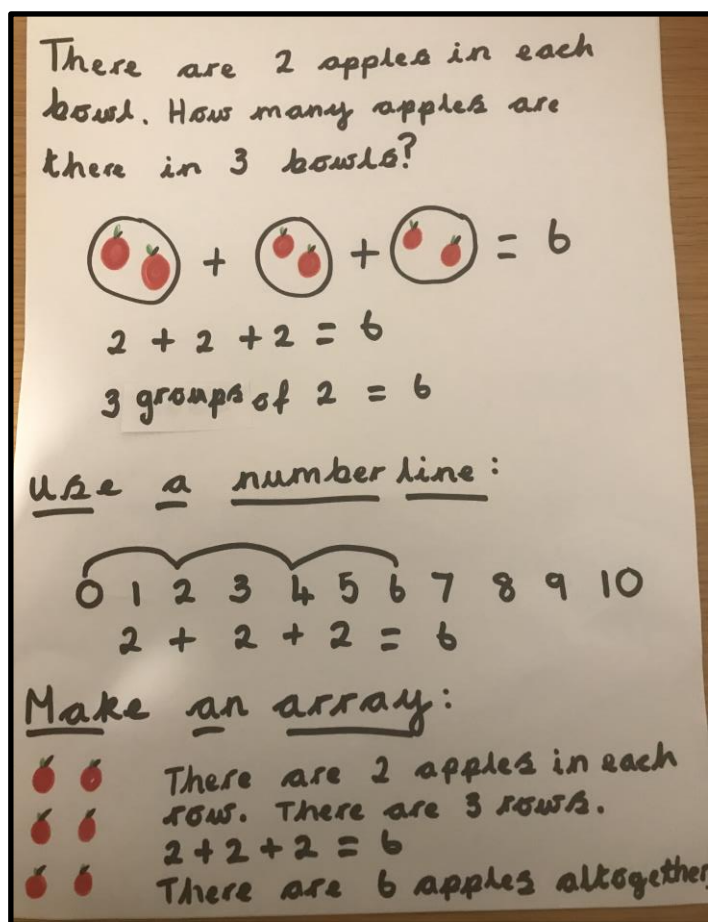 There are 2 apples in each
bowl. How many apples are
there in 3 bowls?
+ + = 6
2 + 2 + 2 = 6
3 groups of 2 = 6
use a number line:
0 1 2 3 4 5 6 7 8 9 10
2 + 2 + 2 = 6
Make an array:
There are 2 apples in each
row. There are 3 rows.
2 + 2 + 2 = 6
There are 6 apples altogether,